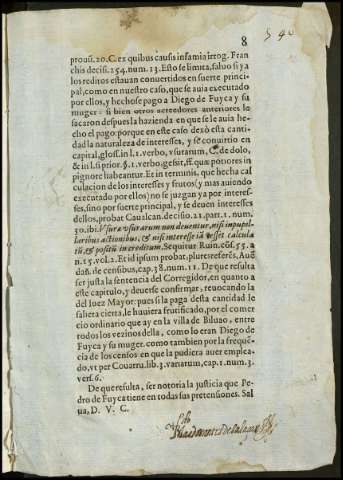 8
prouis. 20. C. ex quibus causis infamia irrog. Fran
chis decis. 154. num. 13. Esto se limita, saluo si ya
los reditos estauan conuertidos en suerte princi-
pal, como en nuestro caso, que se auia executado
por ellos, y hechose pago a Diego de Fuyca y su
muger: si bien otros acreedores anteriores le
sacaron despues la hazienda en que se le auia he-
cho el pago: porque en este caso dexò esta canti-
dad la naturaleza de interesses, y se conuirtio en
capital, gloss. in l. 1. verbo, vsurarum, C. de dolo,
& in l. si prior. §. 1. verbo, gessit, ff. quæ potiores in
pignore habeantur. Et in terminis, que hecha cal
culacion de los interesses y frutos (y mas auiendo
executado por ellos) no se juzgan ya por interes-
ses, sino por suerte principal, y se deuen interesses
dellos, probat Caualcan. decisio. 21. part. 1. num.
30. ibi: Vsuræ vsurarum non deuentur, nisi in pupil-
laribus actionibus, & nisi interesse iã esset calcula
tũ, & positũ in creditum. Sequitur Ruin. cõs. 55. a
n. 15. vol. 2. Et id ipsum probat. plures referẽs, Auẽ
dañ. de censibus, cap. 38. num. 11. De que resulta
ser justa la sentencia del Corregidor, en quanto a
este capitulo, y deuerse confirmar, reuocando la
del Iuez Mayor: pues si la paga desta cantidad le
saliera cierta, le huuiera frutificado, por el comer
cio ordinario que ay en la villa de Bilbao, entre
todos los vezinos della, como lo eran Diego de
Fuyca y su muger. como tambien por la frequẽ
cia de los censos en que la pudiera auer emplea-
do, vt per Couarru. lib. 3. variarum, cap. 1. num. 3.
vers. 6.
De que resulta, ser notoria la justicia que Pe-
dro de Fuyca tiene en todas sus pretensiones. Sal
ua, D. V. C.